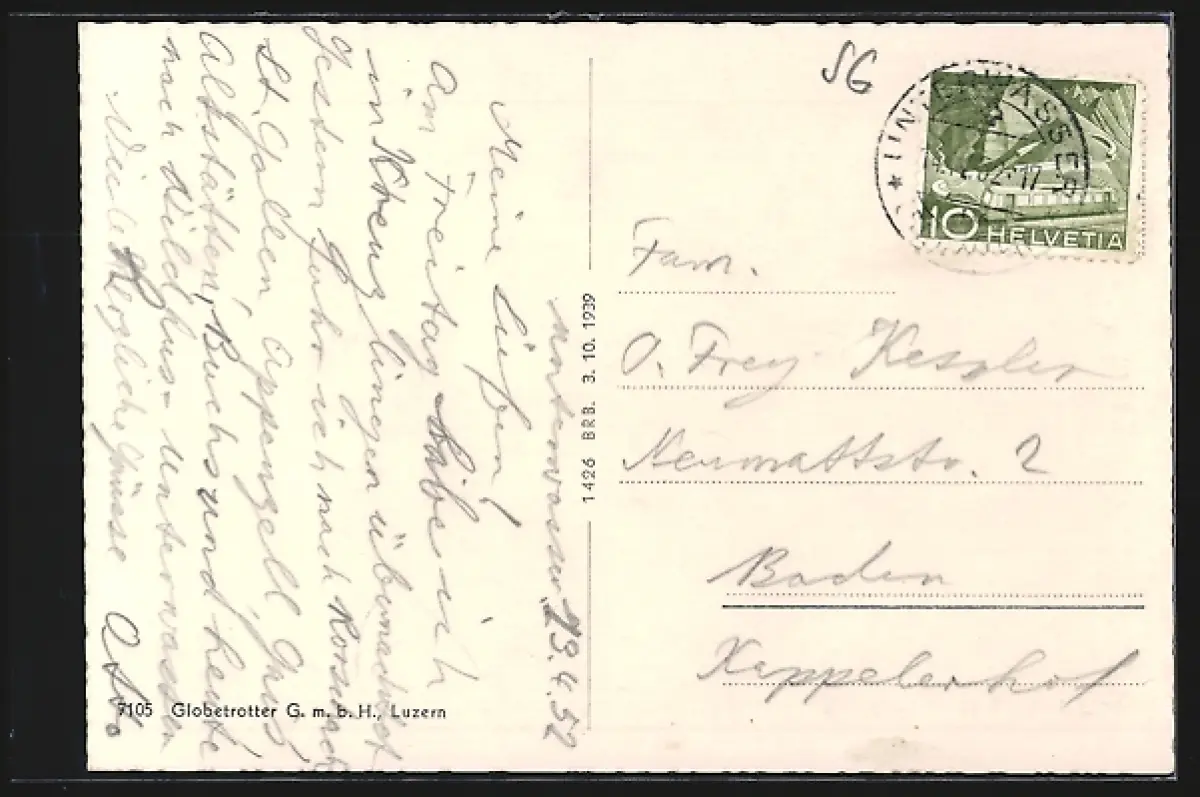 Unterwasser 13.4.52
Meine Lieben!
Am Freitag habe ich
in Kreuzlingen übernachtet
Gestern fuhr ich nach Rorschach
St. Gallen Appenzell, Gais,
Altstätten, Buchs und heute
nach Wildhus - Unterwasser
Viele Herzliche Grüsse Otto
7105 Globetrotter G. m. b. H., Luzern
1426 BRB. 3. 10. 1939
SG
UNTERWASSER
10 HELVETIA
Fam.
O. Frey Kessler
Neumattstr. 2
Baden
Kappelerhof